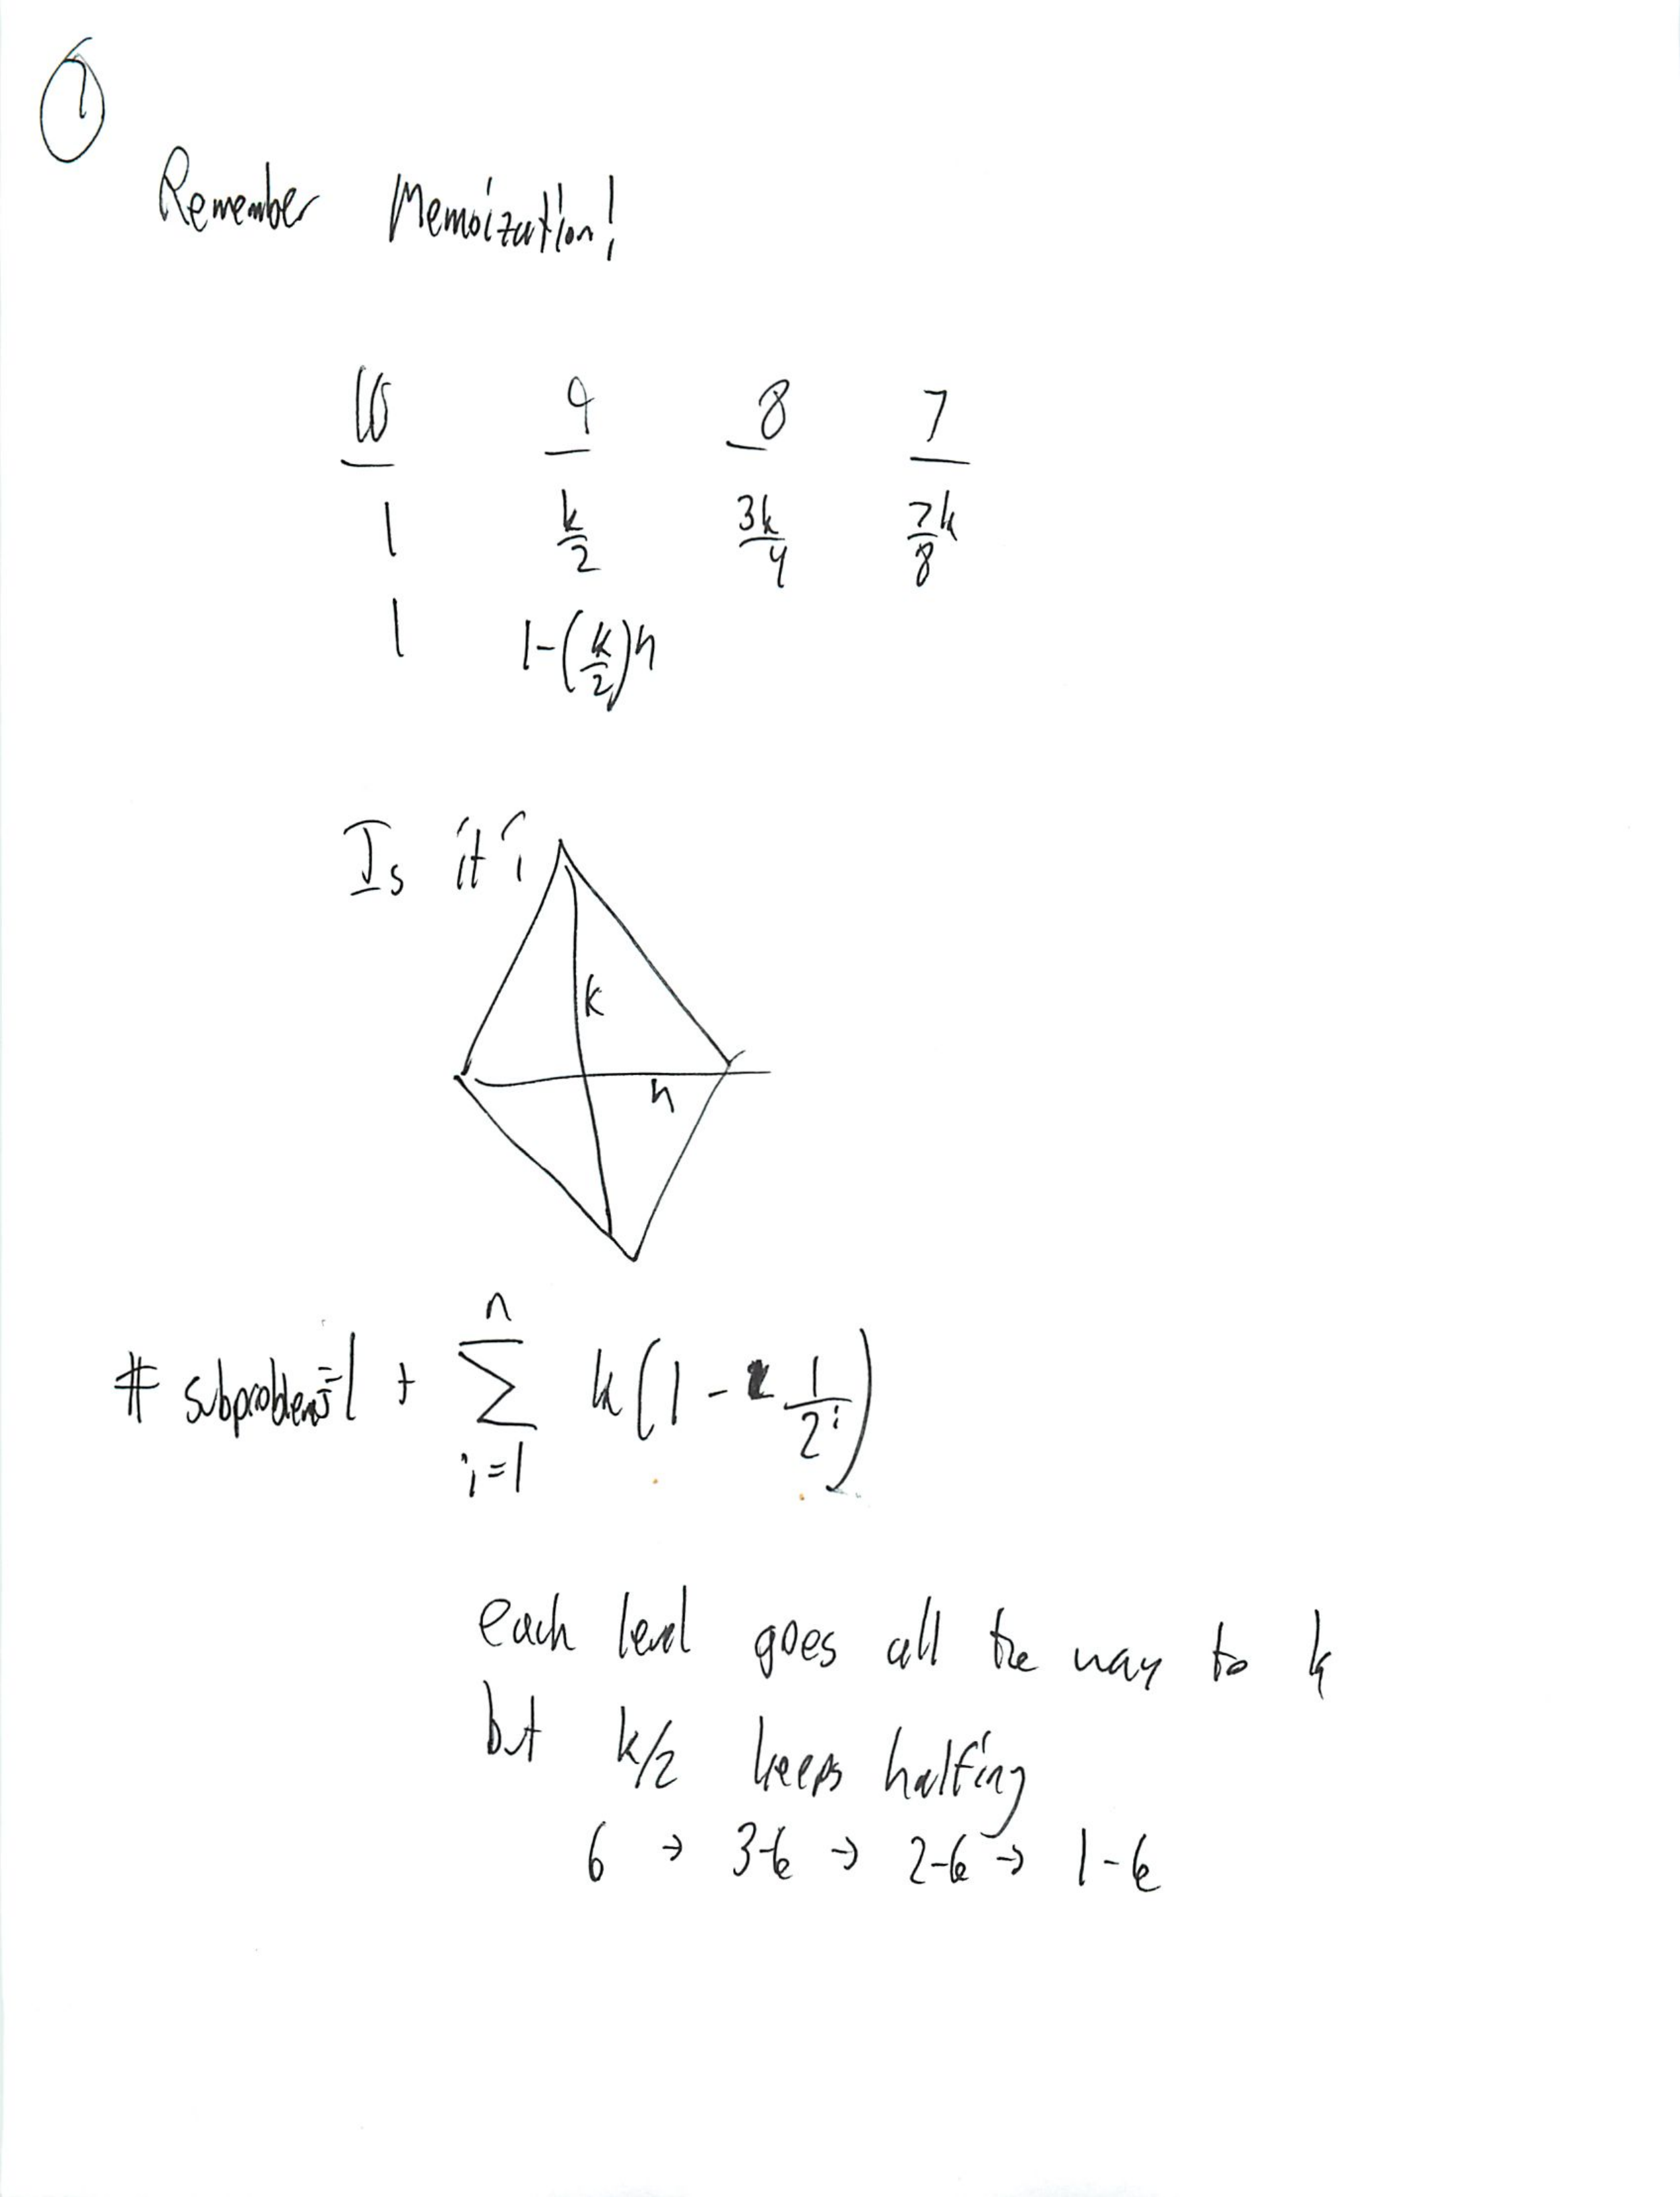 ①
Remember Memoization!
10 9 8 7
1 k/2 3k/4 7k/8
1 1-(k/2)n
Is it i
k
n
# subproblems = 1 + \sum_{i=1}^{n} k(1 - \frac{1}{2^i})
each level goes all the way to k
but k/2 keeps halfing
6 → 3-6 → 2-6 → 1-6